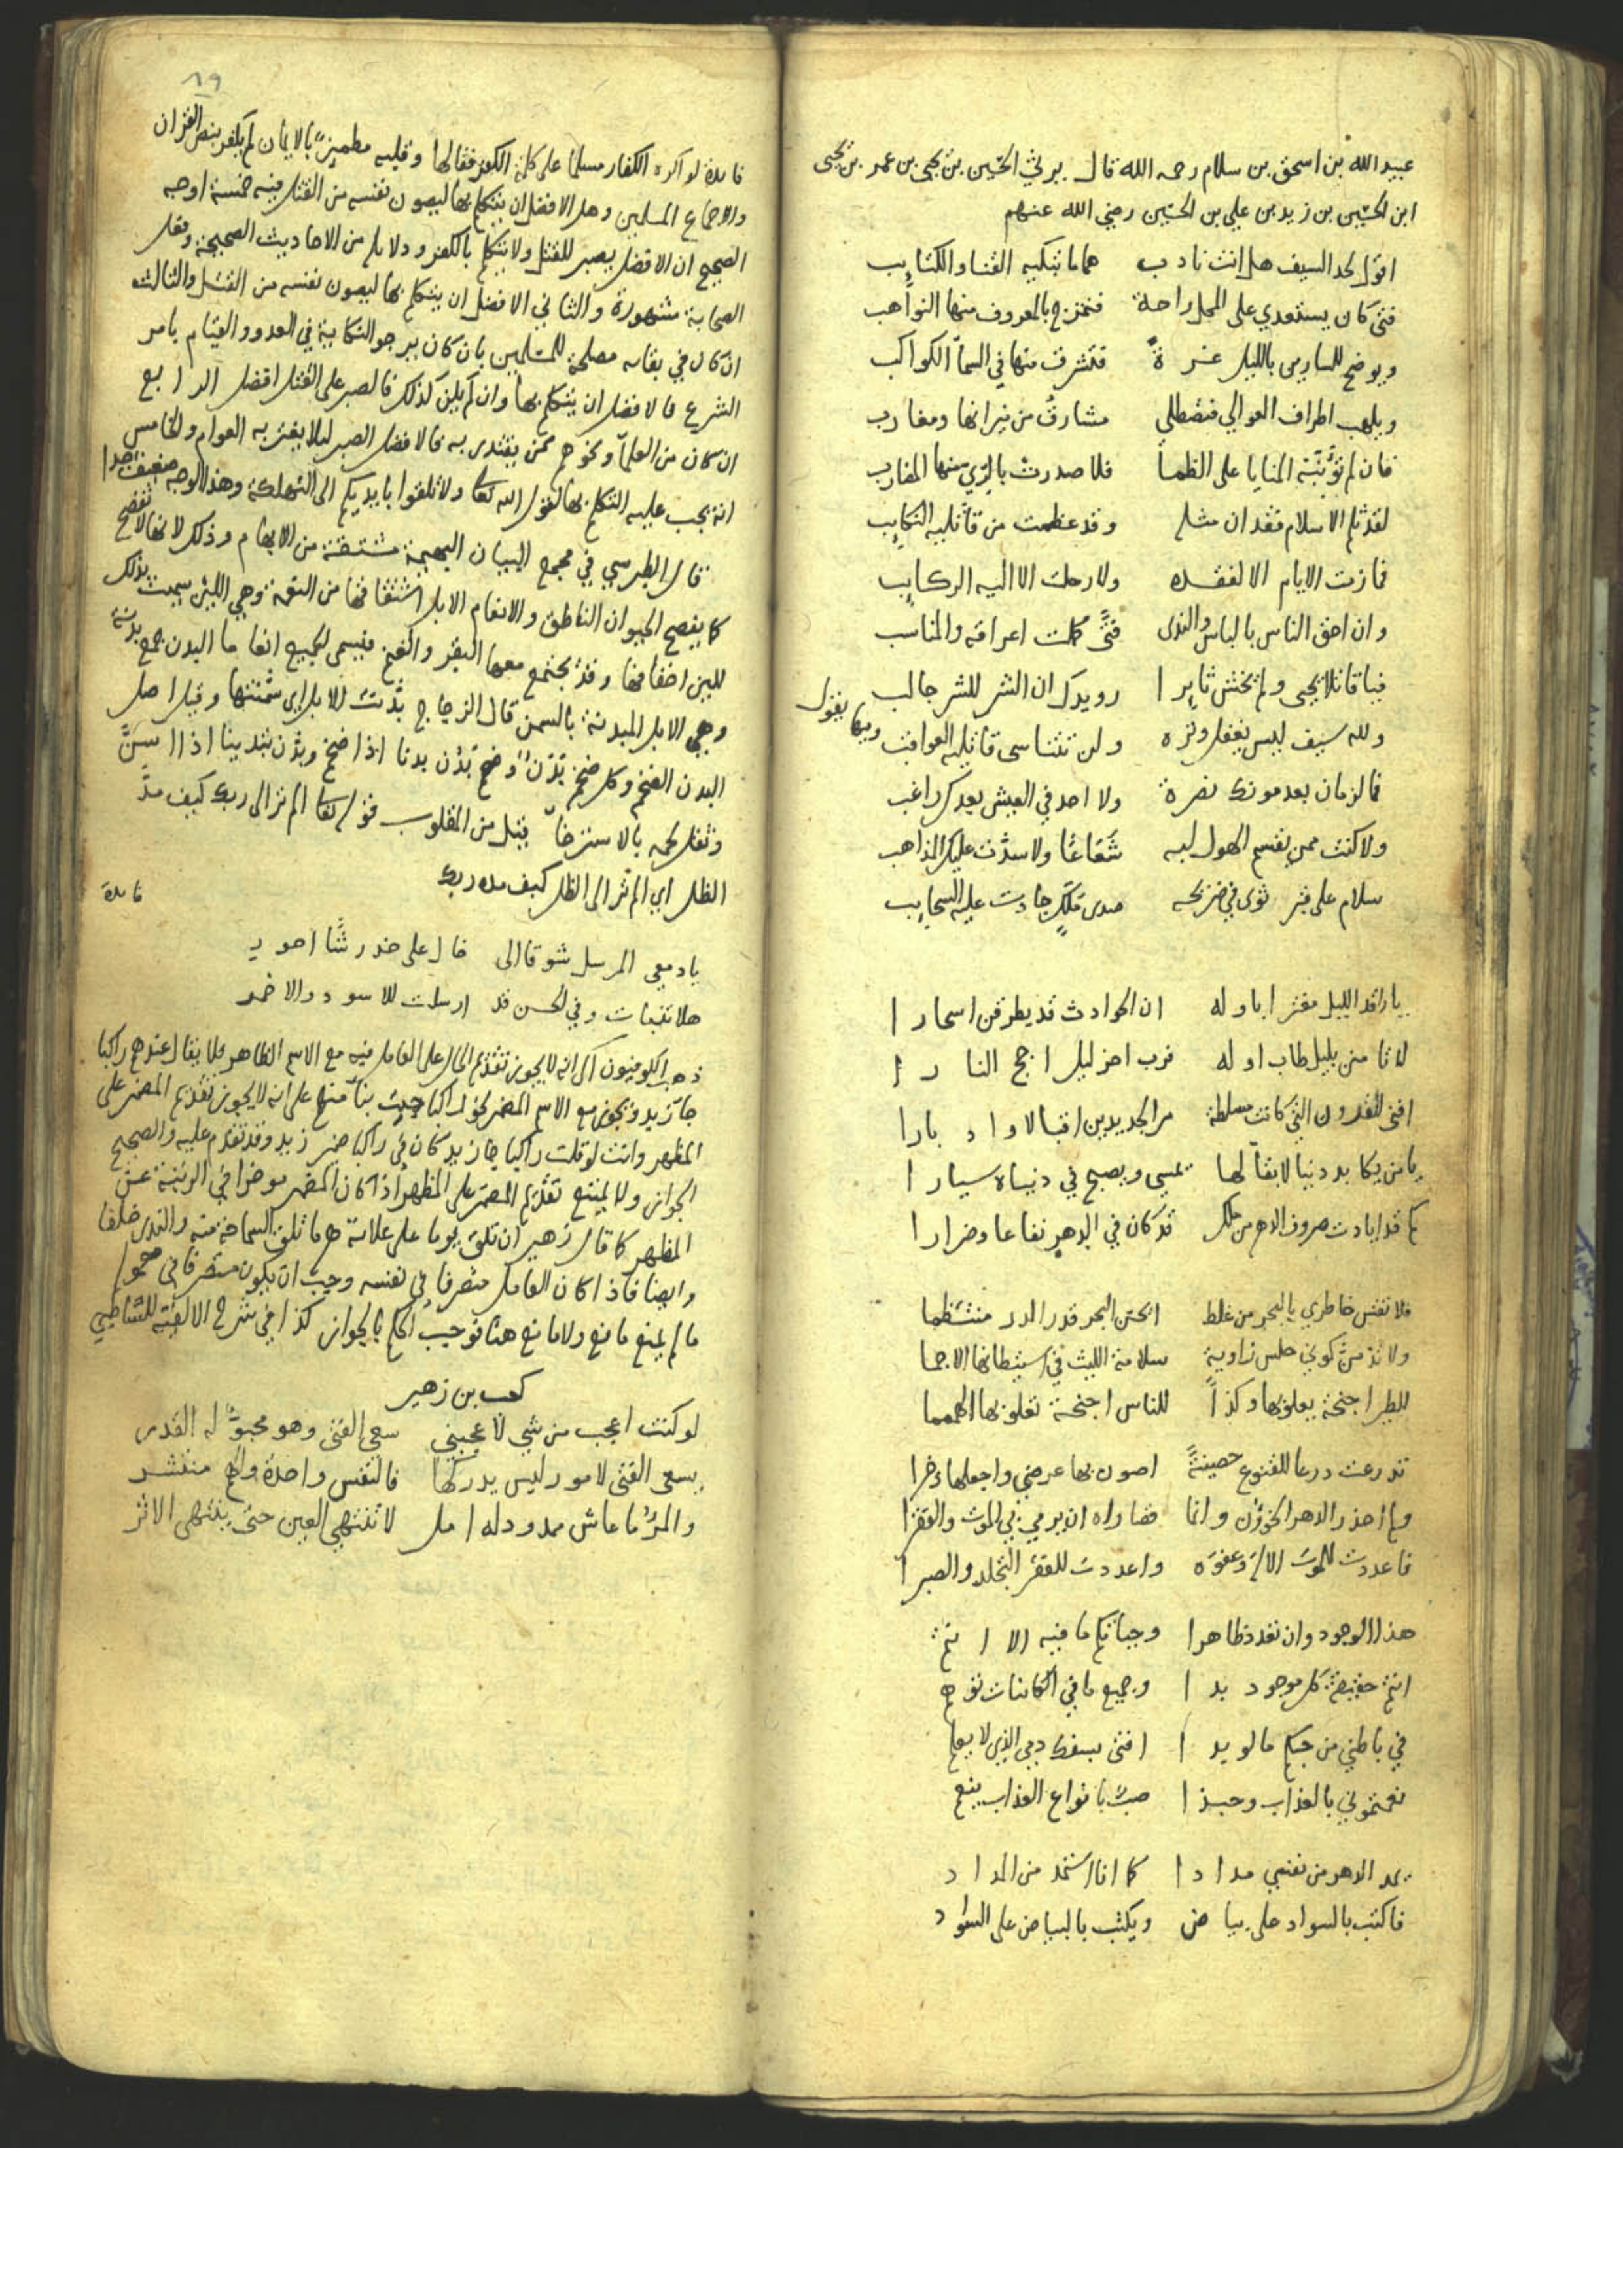 عبيد الله بن اسحق بن سلام رحمه الله قال يرثي الحسين بن يحيى بن عمر بن يحيى
ابن الحسين بن زيد بن علي بن الحسين رضي الله عنهم
اقول لحد السيف هل انت نادب هماما تبكيه القنا والكتايب
فتى كان يستعدي على المحل راحة فتمزج بالمعروف منها النواهب
ويوضح للساري بالليل غرة فتشرف منها في السما الكواكب
ويلهب اطراف العوالي فتصطلي مشارق من نيرانها ومغارب
فان لم تؤبنه المنايا على الظما فلا صدرت بالري منها المقارب
لقد ثلم الاسلام فقدان مثله وقد عظمت من قاتليه النكايب
فما زمت الايام الا لفقده ولا رحلت الا اليه الركايب
وان احق الناس بالباس والندى فتى كملت اعراقه والمناسب
فيا قاتلا يحيى ولم يخش ثايرا رويدك ان الشر للشر جالب
ولله سيف ليس يغفل وتره ولن تتناسى قاتليه العواقب
ومنها يقول
فما لزمان بعد موتك نضرة ولا احد في العيش بعدك راغب
ولا كنت ممن يقسم الهول لبه شعاعا ولا سدت عليك المذاهب
سلام على قبر ثوى في ضريحه صدى ملك جادت عليه السحايب
يا راقد الليل مغترا باوله ان الحوادث قد يطرقن اسحارا
لا تامنن بليل طاب اوله فرب اخر ليل اجج النارا
افنى القرون التي كانت مسلطة مر الجديدين اقبالا وادبارا
يا من يكابد دنيا لا بقا لها يمسي ويصبح في دنياه سيارا
كم قد ابادت صروف الدهر من ملك قد كان في الدهر نفاعا وضرارا
فلا تقس خاطري بالبحر من غلط انحن البحر قدر الدر منتظما
ولا تذمن كوني حلس زاوية سلامة الليث في استيطانها الاجما
للطير اجنحة يعلو بها وكذا للناس اجنحة تعلو بها الهمما
تدرعت درعا للقنوع حصينة اصون بها عرضي واجعلها ذخرا
ولم احذر الدهر الخؤن وانما قصاراه ان يرمي بي الموت والفقرا
فاعددت للموت الاله وعفوه واعددت للفقر التجلد والصبرا
هذا الوجود وان تعدد ظاهرا وحياتكم ما فيه الا انتم
انتم حقيقة كل موجود بدا وجميع ما في الكائنات توهم
في باطني من حبكم ما لو بدا افتى بسفك دمي الذي لا يعلم
نعمتموني بالعذاب وحبذا صب بانواع العذاب ينعم
يمد الدهر من نفسي مدادا كما انا استمد من المداد
فاكتب بالسواد على بياض ويكتب بالبياض على السواد
٨٩
فايدة لو اكره الكفار مسلما على كلمة الكفر فقالها وقلبه مطمين بالايمان لم يكفر بنص القران
والاجماع المسلمين وهل الافضل ان يتكلم بها ليصون نفسه من القتل فيه خمسة اوجه
الصحيح ان الافضل يصبر للقتل ولا يتكلم بالكفر ودلايله من الاحاديث الصحيحة وفعل
الصحابة مشهورة والثاني الافضل ان يتكلم بها ليصون نفسه من القتل والثالث
ان كان في بقايه مصلحة للمسلمين بان كان يرجو النكاية في العدو والقيام بامر
الشرع فالافضل ان يتكلم بها وان لم يكن كذلك فالصبر على القتل افضل الرابع
ان كان من العلما ونحوهم ممن يقتدى به فالافضل الصبر ليلا يغتر به العوام والخامس
انه يجب عليه التكلم بها لقول الله تعالى ولا تلقوا بايديكم الى التهلكة وهذا الوجه ضعيف جدا
قال الطبرسي في مجمع البيان البهيمة مشتقة من الابهام وذلك لانها لا تفصح
كما يفصح الحيوان الناطق والانعام الابل اشتقاقها من النعمة وهي اللين سميت بذلك
للين اخفافها وقد يجتمع معها البقر والغنم فيسمى الجميع انعاما البدن جمع بدنة
وهي الابل المبدنة بالسمن قال الزجاج بدنت للابل اي سمنتها وقيل اصل
البدن الضخم وكل ضخم بدن وضخم بدن بدنا اذا ضخم وبدن تبدينا اذا اسن
وثقل لحمه بالاسترخا قيل من المقلوب قوله تعالى الم تر الى ربك كيف مد
الظل اي الم تر الى الظل كيف مده ربك
فايدة
يا دمعي المرسل شوقا الى خال على خد رشا احور
هلا تثبات وفي الحسن قد ارسلت للاسود والاحمر
ذهب الكوفيون الى انه لا يجوز تقديم الحال على العامل فيه مع الاسم الظاهر فلا يقال عندهم راكبا
جا زيد ويجوز مع الاسم المضمر نحو راكبا جيت بنا منهم على انه لا يجوز تقديم المضمر على
المظهر وانت لو قلت راكبا جا زيد كان في راكبا ضمير زيد وقد تقدم عليه والصحيح
الجواز ولا يمتنع تقديم المضمر على المظهر اذا كان المضمر موخرا في الرتبة عن
المظهر كما قال زهير ان تلق يوما على علاته هرما تلق السماحة منه والندى خلقا
وايضا فاذا كان العامل متصرفا في نفسه وجب ان يكون متصرفا في معموله
ما لم يمنع مانع ولا مانع هنا فوجب الحكم بالجواز كذا في شرح الالفية للشاطبي
كعب بن زهير
لو كنت اعجب من شي لاعجبني سعي الفتى وهو مخبو له القدر
يسعى الفتى لامور ليس يدركها فالنفس واحدة والهم منتشر
والمرؤ ما عاش ممدود له امل لا تنتهي العين حتى ينتهي الاثر